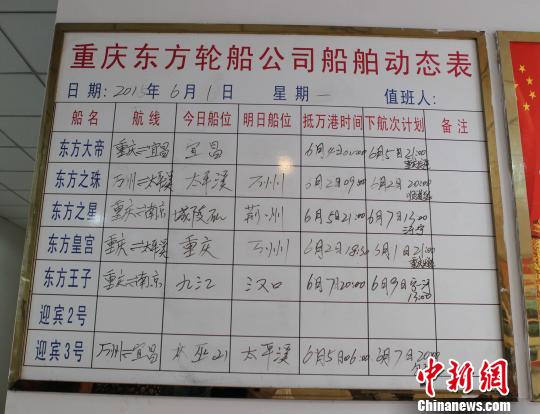 重庆东方轮船公司船舶动态表
日期:2015年6月1日 星期一 值班人:
船名 航线 今日船位 明日船位 抵万港时间 下航次计划 备注
东方大帝 重庆=宜昌 宜昌 6月4日01:00 6月5日21:00
东方之珠 万州=太平溪 太平溪 万州 6月2日09:00 6月2日20:00
东方之星 重庆=南京 城陵矶 荆州 6月5日21:00 6月7日13:00
东方皇宫 重庆=太平溪 重庆 万州 6月2日18:30 6月1日21:00
东方王子 重庆=南京 九江 汉口 6月7日20:00 6月9日 13:00
迎宾2号
迎宾3号 万州=宜昌 太平溪 6月5日06:00 6月7日20:00
中新网
Chinanews.com